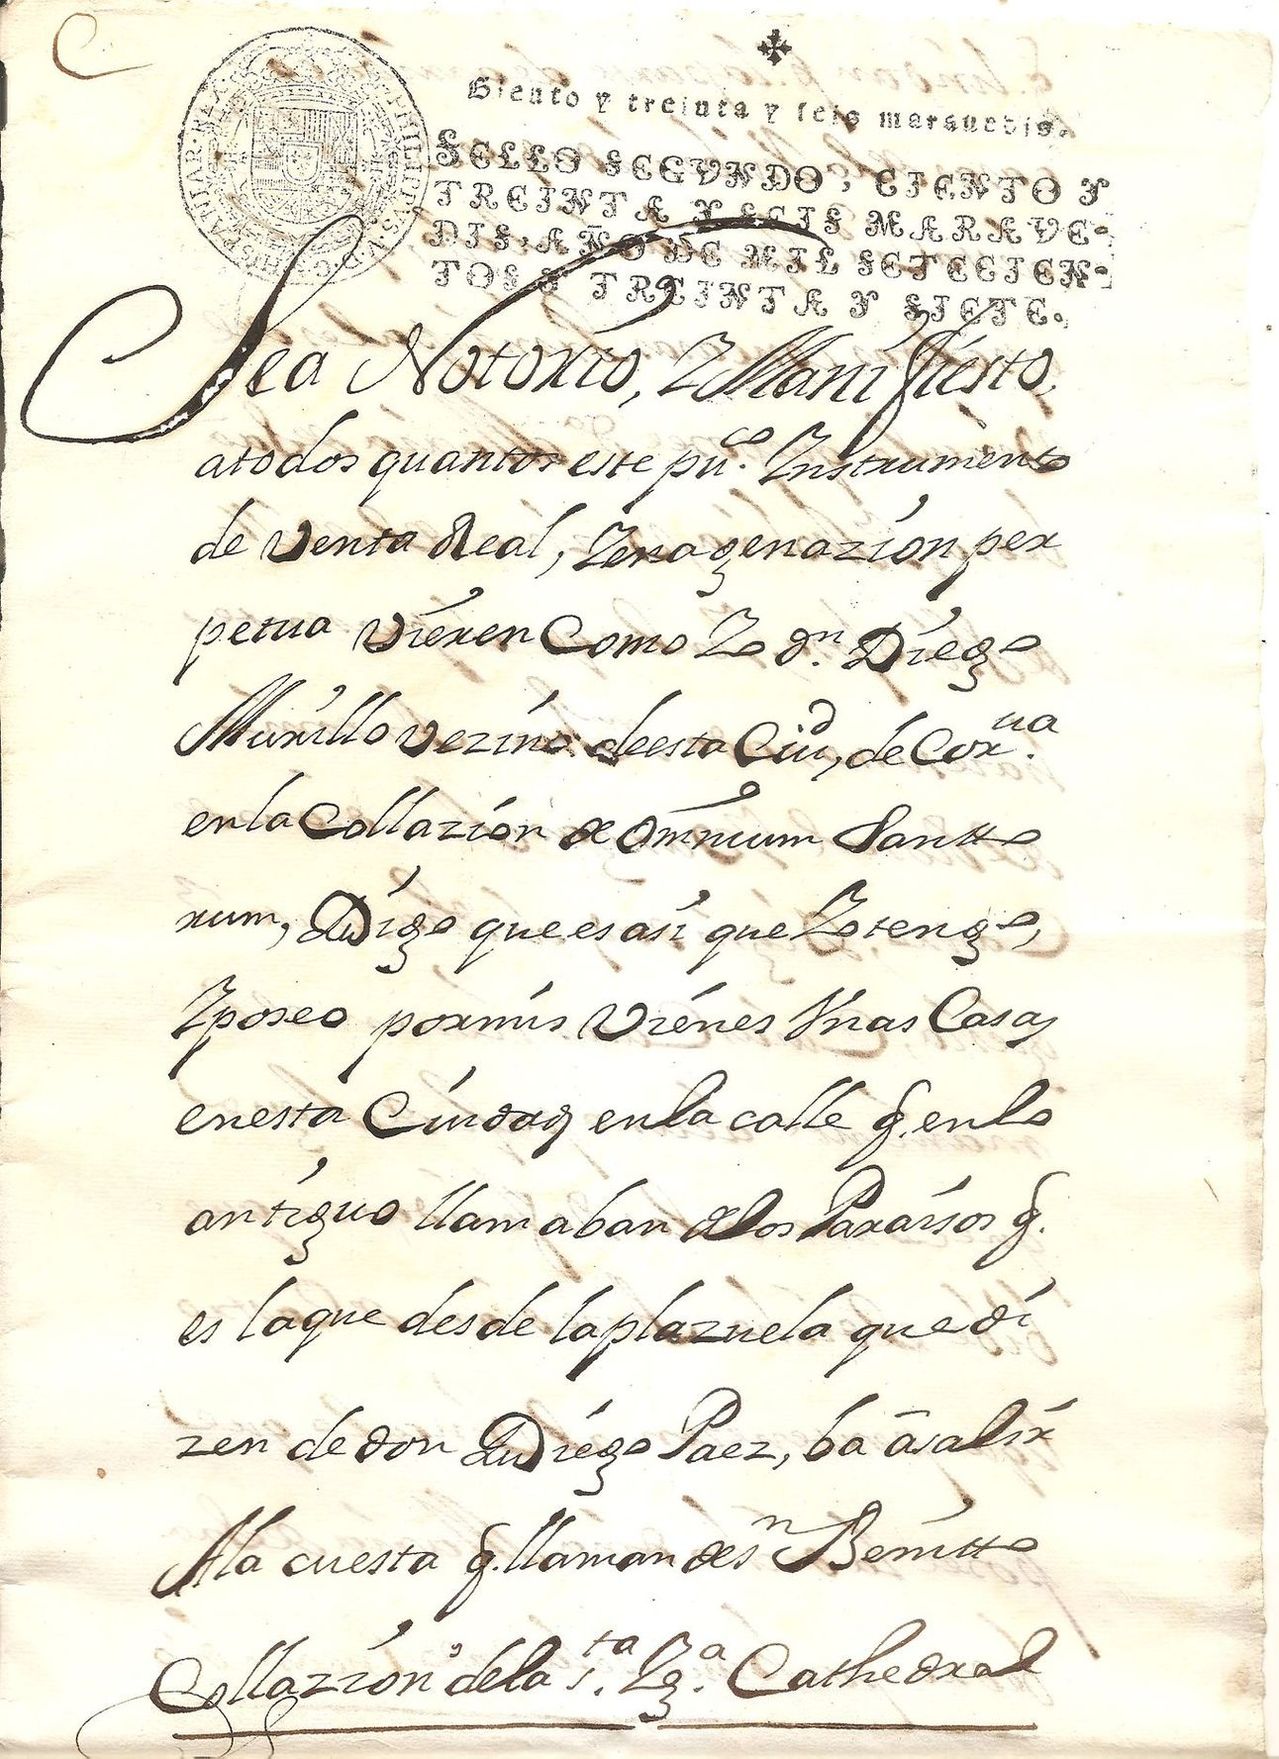 Ciento y treinta y seis marauedis.
SELLO SEGVNDO, CIENTO Y
TREINTA Y SEIS MARAVE-
DIS, AÑO DE MIL SETECIEN-
TOS Y TREINTA Y SIETE.
PHILIPPVS V D G HISPANIAR REX
Sea Notorio, Y Manifiesto,
atodos quantos este pu.co Ynstrumento
de Venta Real, Yenagenazion per
petua Vieren Como Yo dn. Diego
Murillo vezino deesta Ciud, de Corua.
enla Collazion de Omnium Santto
rum, Digo que es asi que Yo tengo,
Yposeo por mis Vienes Vnas Casas
enesta Ciudad enla calle q. enlo
antiguo llamaban delos Paraisos q.
es laque desde la plazuela que di
zen de don Diego Paez, ba a salir
Ala cuesta q. llaman de sn Benitto
Collazion dela sta. Yga. Cathedral